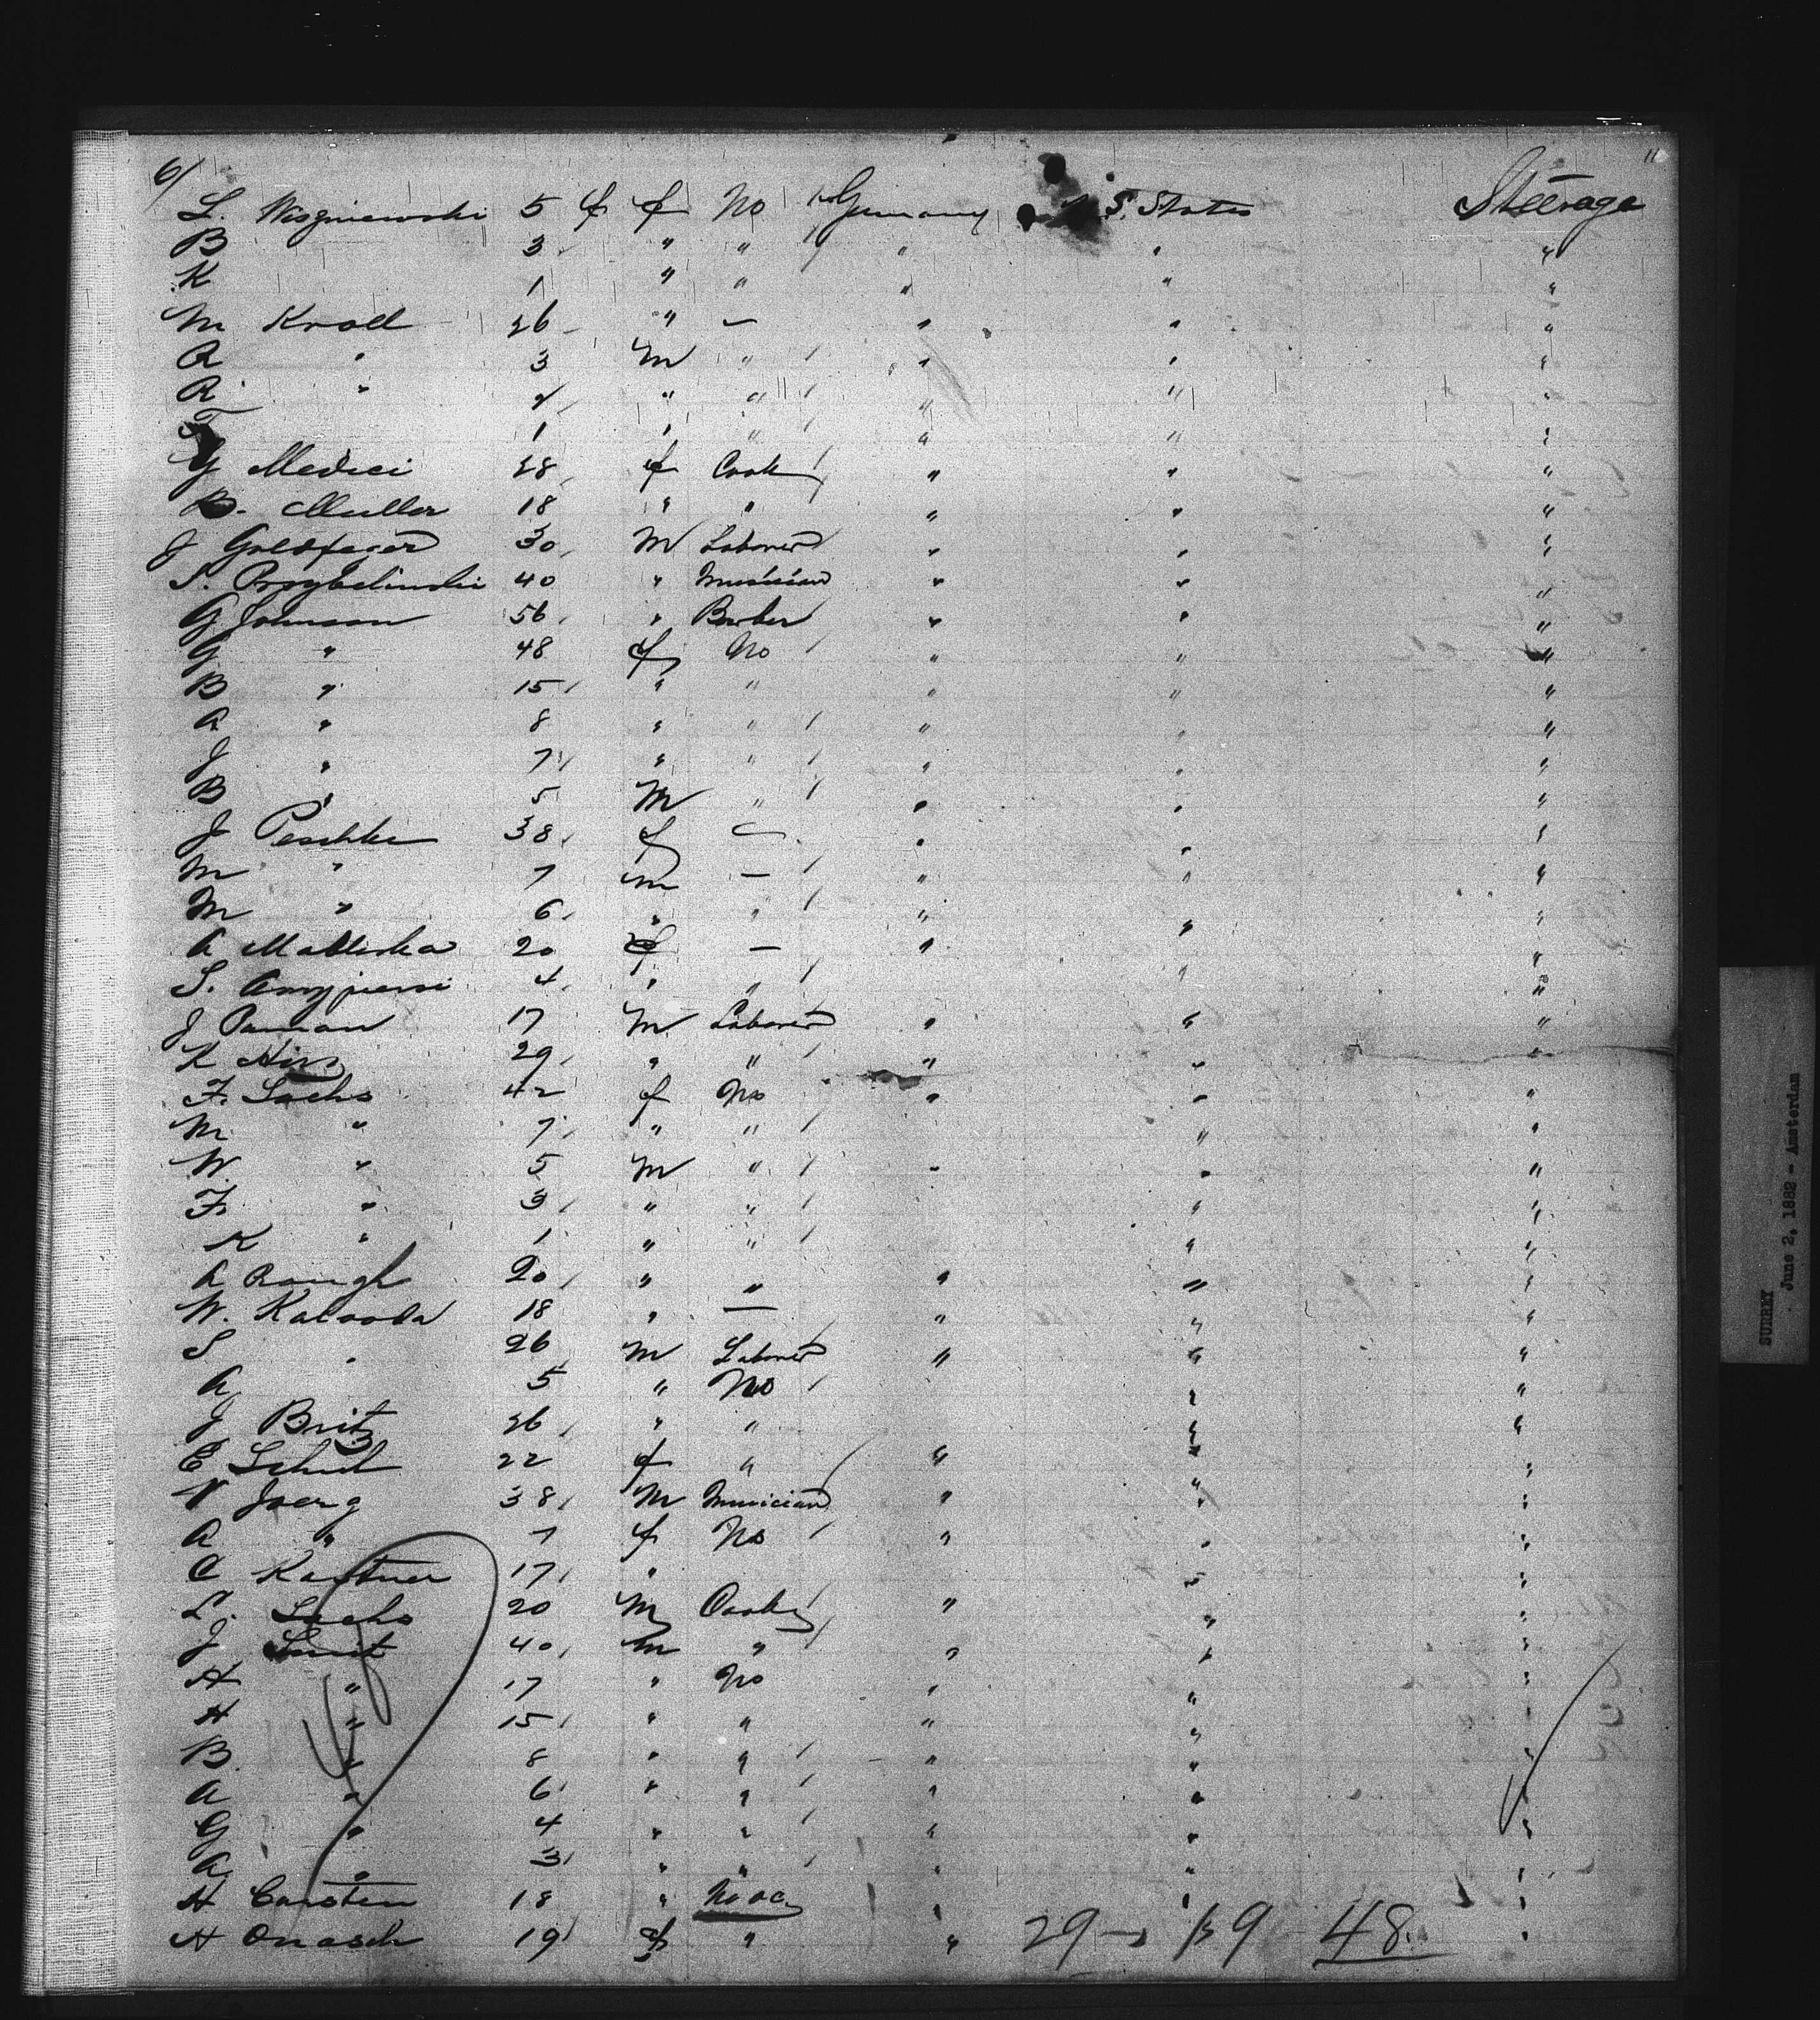 6/
L. Wisgniewski 5 f f No Germany S. States Steerage
B 3 " " " " "
K 1 " " " " "
M Kroll 26 " — " " "
A " 3 M " " " "
R " 2 " " " " "
F 1 " " " " "
G Medici 28 f Cook " " "
B. Muller 18 " " " " "
J Goldfeger 30 M Laborer " " "
S. Przybelinski 40 " Musician " " "
G Johnson 56 " Barber " " "
G " 48 f No " " "
B " 15 " " " " "
A " 8 " " " " "
J " 7 " " " " "
B " 5 M " " " "
J Peschke 38 f — " " "
M " 7 m — " " "
M " 6 " " " " "
A 20 f — " " "
S. 4 " " " "
J Pauman 17 M Laborer " " "
K 29 " " " " "
F. Sachs 42 f No " " "
M " 7 " " " "
W. " 5 M " " " "
F. " 3 " " " "
K " 1 " " " "
A Rough 20 " " " " "
W. Kalooda 18 " — " " "
S " 26 M Laborer " " "
A 5 " No " "
J Britz 26 " " " "
E Schuh 22 f " " " "
V Joerg 38 M Musician " " "
A " 7 f No " " "
C Kastner 17 " " "
L. Sachs 20 M Cook " " "
J Smit 40 m " " " "
A " 17 " No " " "
H " 15 " " " " "
B " 8 " " " " "
A " 6 " " " " "
G " 4 " " " " "
A " 3 " " " " "
H Carsten 18 " No oc " " "
H Onasch 19 f " " 29 - 19 48. "
SURREY
June 2, 1882 - Amsterdam